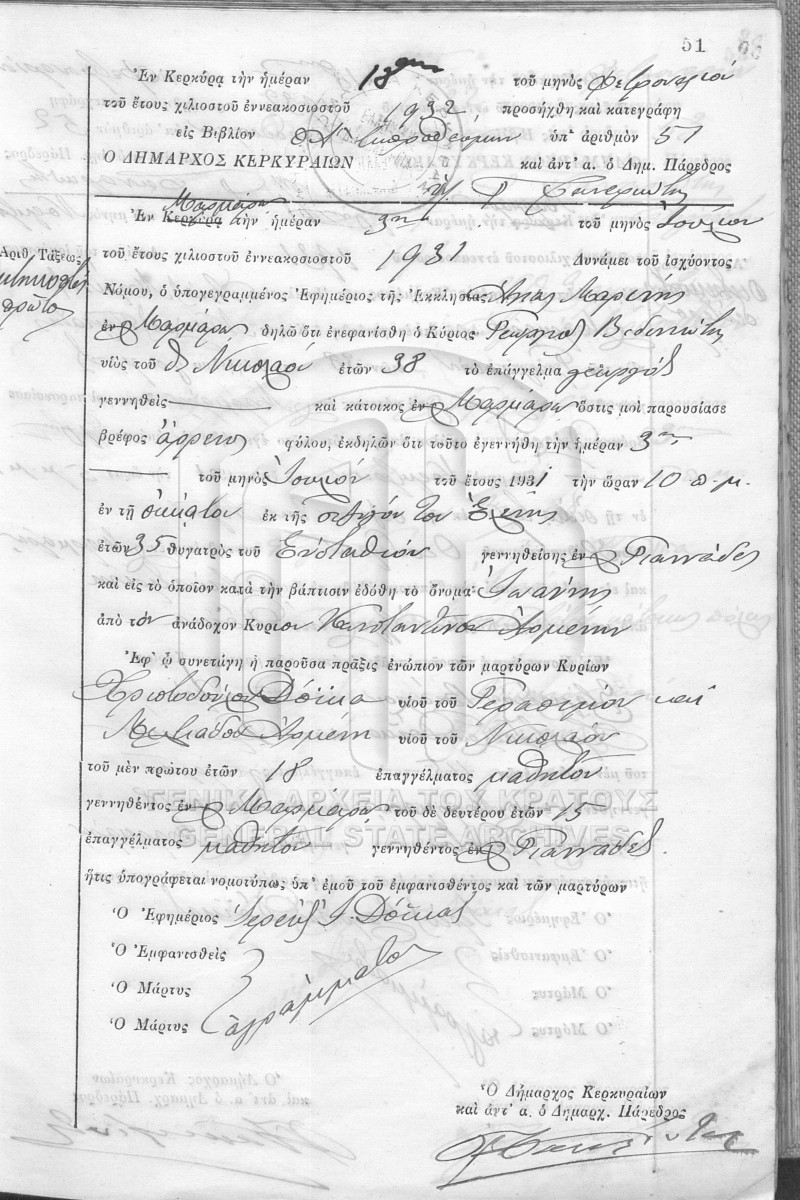 51
Ἐν Κερκύρᾳ τὴν ἡμέραν 18ην τοῦ μηνὸς Φεβρουαρίου
τοῦ ἔτους χιλιοστοῦ ἐννεακοσιοστοῦ 1932 προσήχθη καὶ κατεγράφη
εἰς Βιβλίον ἐκπροθέσμων ὑπ' ἀριθμὸν 51
Ὁ ΔΗΜΑΡΧΟΣ ΚΕΡΚΥΡΑΙΩΝ καὶ ἀντ' α. ὁ Δημ. Πάρεδρος
Μαρμάρῳ
Ἐν Κερκύρᾳ τὴν ἡμέραν 3ην τοῦ μηνὸς Ἰουλίου
Ἀριθ. Τάξεως
πρῶτος
τοῦ ἔτους χιλιοστοῦ ἐννεακοσιοστοῦ 1931 Δυνάμει τοῦ ἰσχύοντος
Νόμου, ὁ ὑπογεγραμμένος Ἐφημέριος τῆς Ἐκκλησίας Ἁγίας Μαρίνης
ἐν Μαρμάρῳ δηλῶ ὅτι ἐνεφανίσθη ὁ Κύριος Γεώργιος
υἱὸς τοῦ Νικολάου ἐτῶν 38 τὸ ἐπάγγελμα γεωργός
γεννηθεὶς καὶ κάτοικος ἐν Μαρμάρῳ ὅστις μοὶ παρουσίασε
βρέφος ἄρρενος φύλου, ἐκδηλῶν ὅτι τοῦτο ἐγεννήθη τὴν ἡμέραν 3ην
τοῦ μηνὸς Ἰουλίου τοῦ ἔτους 1931 τὴν ὥραν 10 π.μ.
ἐν τῇ οἰκίᾳ του ἐκ τῆς συζύγου του Ἑλένης
ἐτῶν 35 θυγατρὸς τοῦ Εὐσταθίου γεννηθείσης ἐν Γιαννάδες
καὶ εἰς τὸ ὁποῖον κατὰ τὴν βάπτισιν ἐδόθη τὸ ὄνομα Ἰωάννης
ἀπὸ τὸν ἀνάδοχον Κύριον Κωνσταντῖνον Ἀρμένην
Ἐφ' ᾧ συνετάγη ἡ παροῦσα πρᾶξις ἐνώπιον τῶν μαρτύρων Κυρίων
Χριστοδούλου Δόϊκα υἱοῦ τοῦ Γερασίμου καὶ
Μιλτιάδου Ἀρμένη υἱοῦ τοῦ Νικολάου
τοῦ μὲν πρώτου ἐτῶν 18 ἐπαγγέλματος μαθητοῦ
γεννηθέντος ἐν Μαρμάρῳ τοῦ δὲ δευτέρου ἐτῶν 15
ΓΕΝΙΚΑ ΑΡΧΕΙΑ ΤΟΥ ΚΡΑΤΟΥΣ
GENERAL STATE ARCHIVES
ἐπαγγέλματος μαθητοῦ γεννηθέντος ἐν Γιαννάδες.
ἥτις ὑπογράφεται νομοτύπως ὑπ' ἐμοῦ τοῦ ἐμφανισθέντος καὶ τῶν μαρτύρων
Ὁ Ἐφημέριος Ἱερεὺς Ἰ. Δόϊκας
Ὁ Ἐμφανισθεὶς
Ὁ Μάρτυς
Ὁ Μάρτυς ἀγράμματοι
Ὁ Δήμαρχος Κερκυραίων
καὶ ἀντ' α. ὁ Δημαρχ. Πάρεδρος